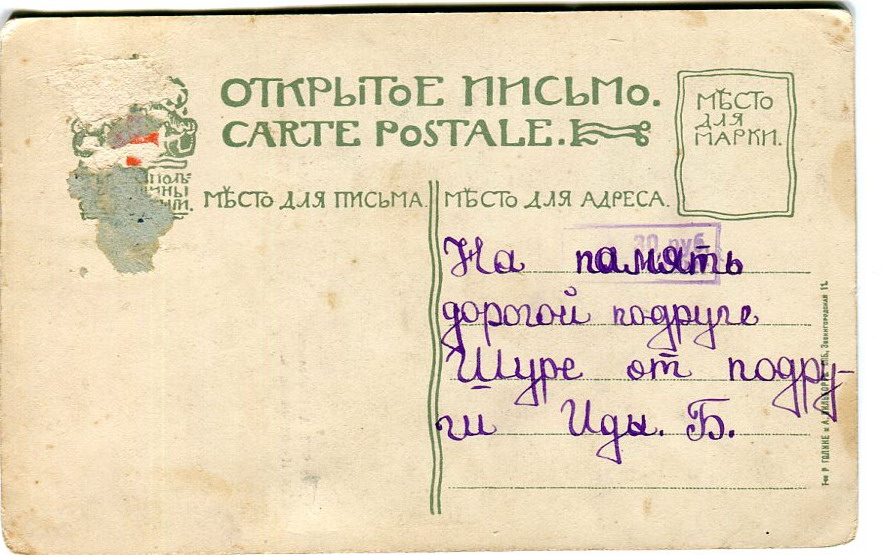 ОТКРЫТОЕ ПИСЬМО.
CARTE POSTALE.
МѢСТО
ДЛЯ
МАРКИ.
МѢСТО ДЛЯ ПИСЬМА.
МѢСТО ДЛЯ АДРЕСА.
30 руб.
На память
дорогой подруге
Шуре от подру-
ги Иды. Б.
Р. ГОЛИКЕ и А. ВИЛЬБОРГЪ. СПБ, Звенигородская 11.